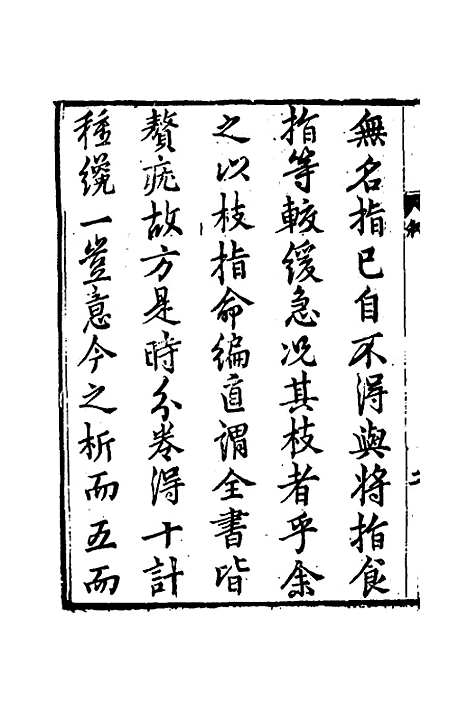 無名指已自不得與將指食
指等較緩急况其枝者乎余
之以枝指命編直謂全書皆
贅疣故方是時分卷得十計
種纔一豈意今之析而五而